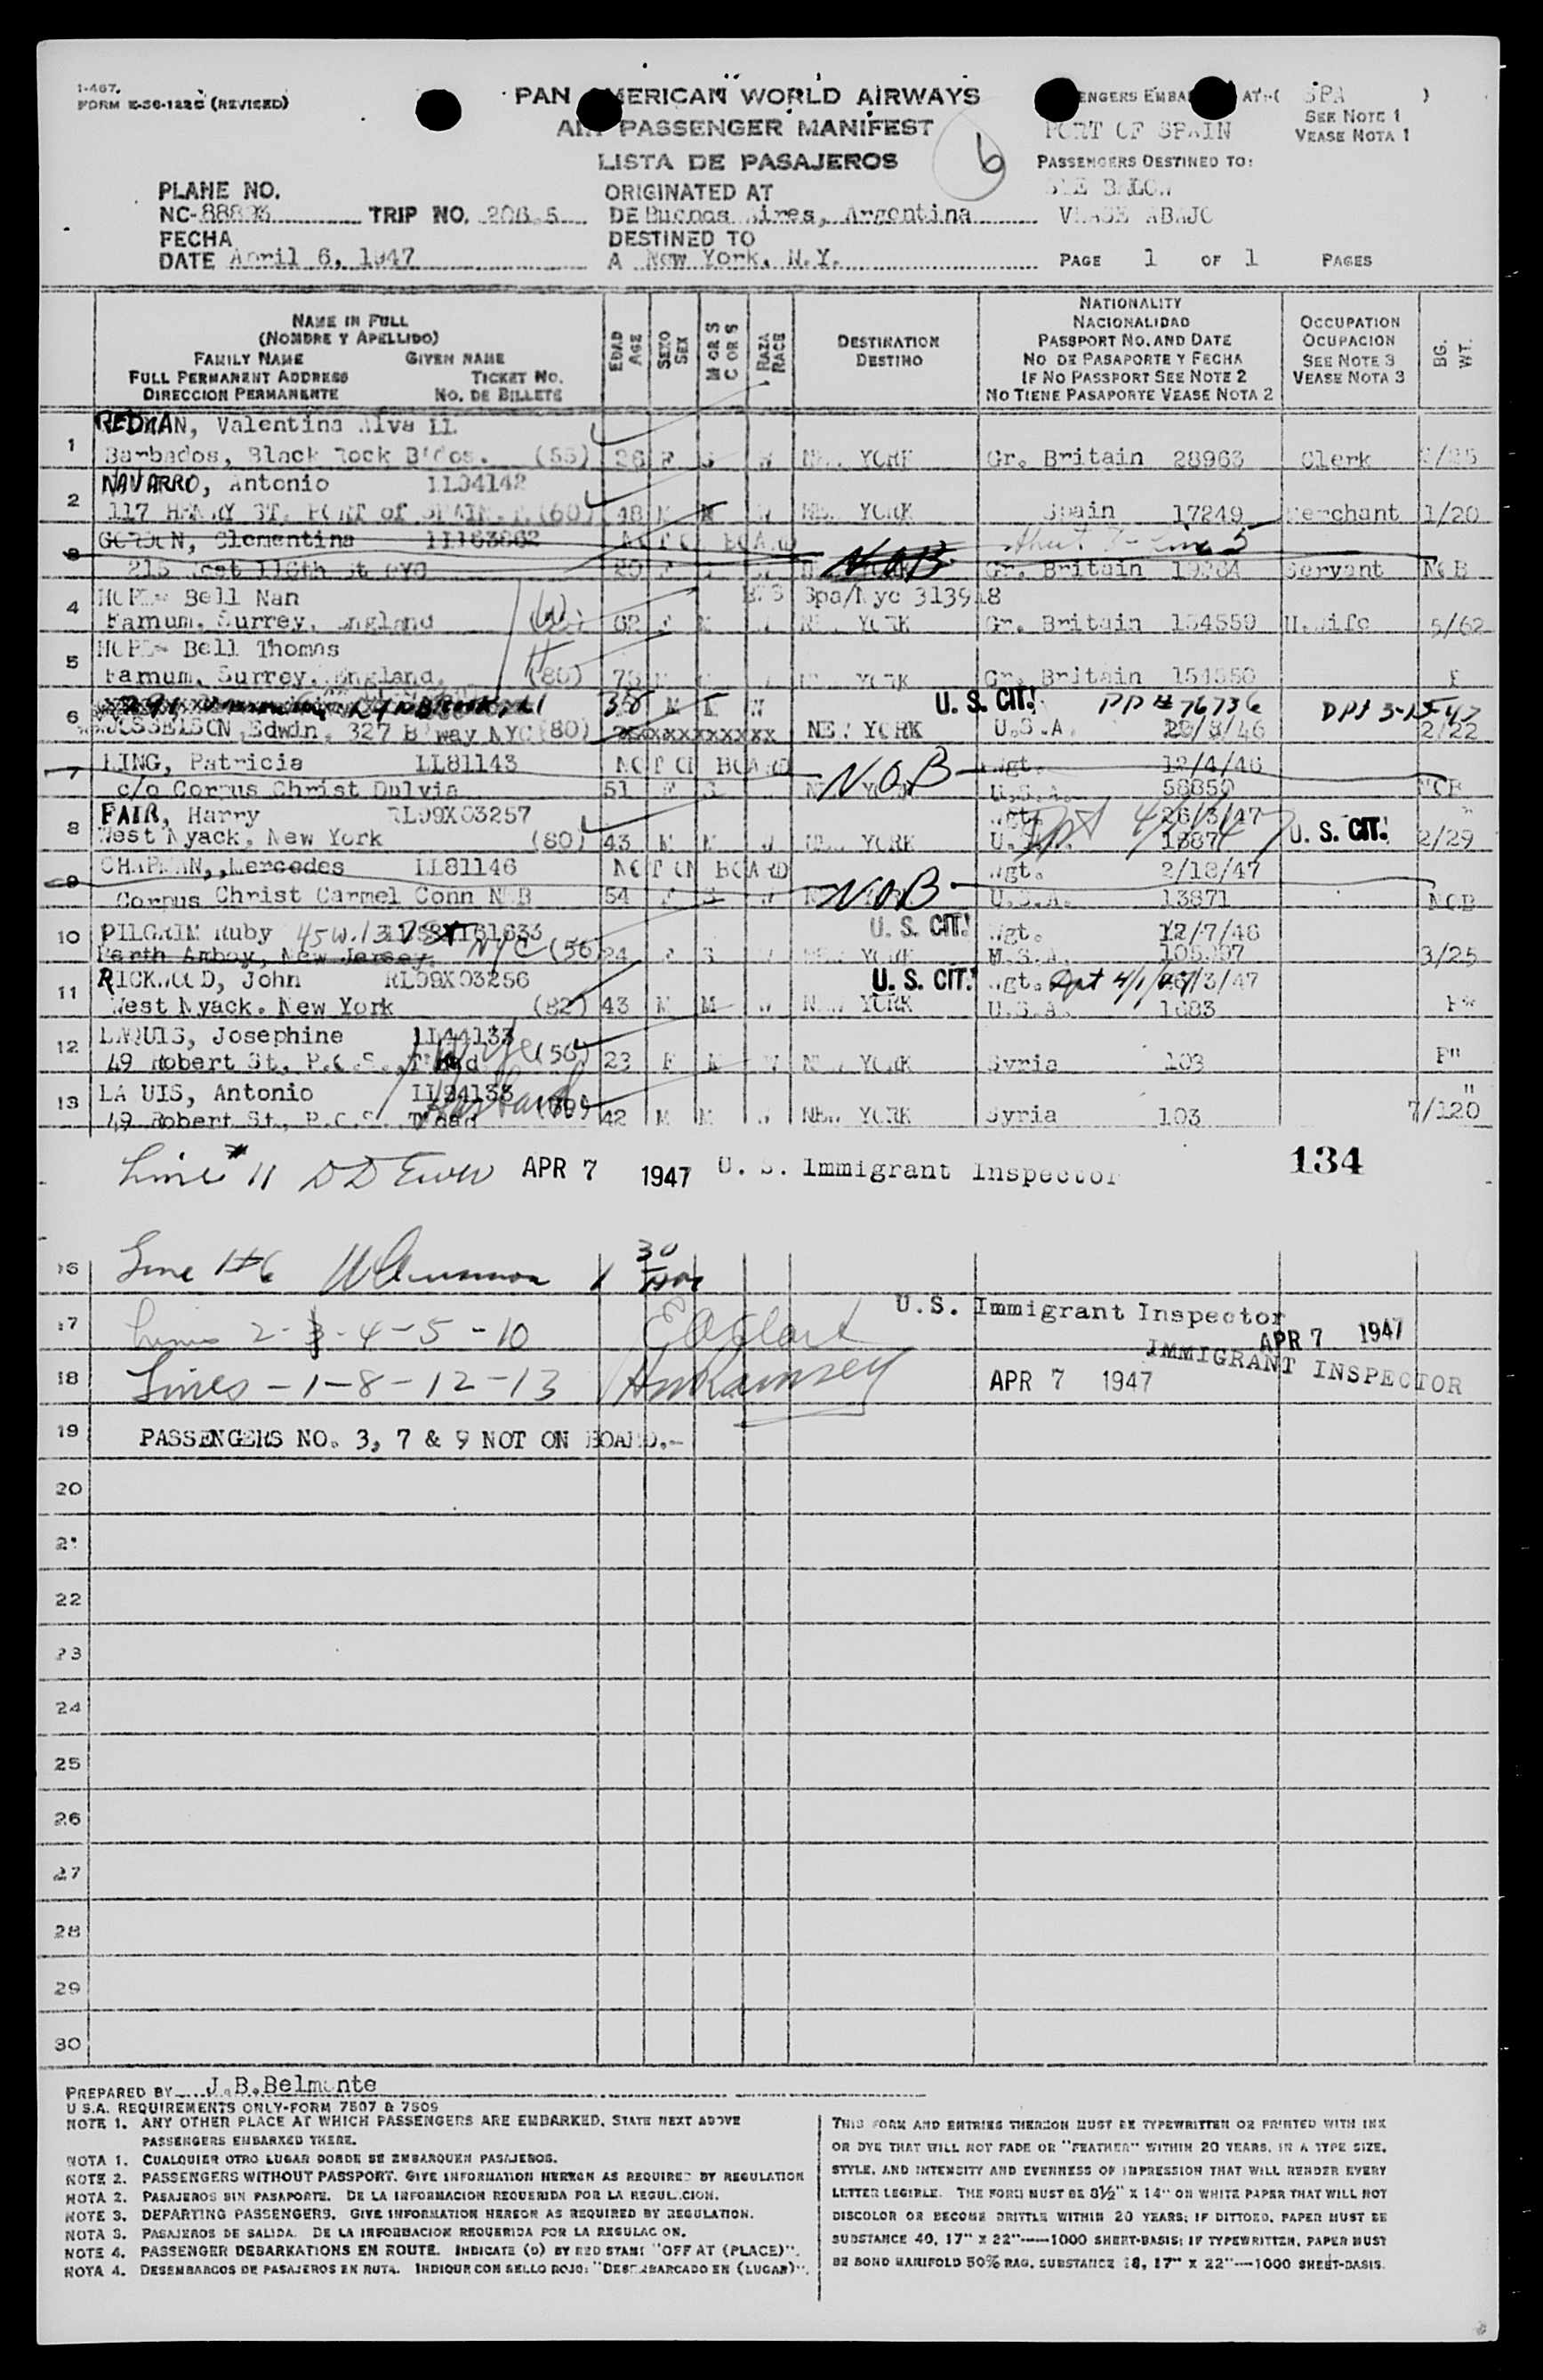 I-467.
FORM E-36-122C (REVISED)
PAN AMERICAN WORLD AIRWAYS
AIR PASSENGER MANIFEST
LISTA DE PASAJEROS
6
ENGERS EMBA AT:-( SPA )
SEE NOTE 1
VEASE NOTA 1
PORT OF SPAIN
PASSENGERS DESTINED TO:
SEE BALOW
VEASE ABAJO
PLANE NO.
NC-88833 TRIP NO. 206.5
ORIGINATED AT
DE Buenos Aires, Argentina
FECHA
DATE April 6, 1947
DESTINED TO
A New York, N.Y.
PAGE 1 OF 1 PAGES
NAME IN FULL
(NOMBRE Y APELLIDO)
FAMILY NAME GIVEN NAME
FULL PERMANENT ADDRESS TICKET NO.
DIRECCION PERMANENTE NO. DE BILLETE
EDAD AGE
SEXO SEX
M OR S C OR S
RAZA RACE
DESTINATION
DESTINO
NATIONALITY
NACIONALIDAD
PASSPORT NO. AND DATE
NO DE PASAPORTE Y FECHA
IF NO PASSPORT SEE NOTE 2
NO TIENE PASAPORTE VEASE NOTA 2
OCCUPATION
OCUPACION
SEE NOTE 3
VEASE NOTA 3
BG. WT.
REDMAN, Valentina Alva LL
1 Barbados, Black Rock B'dos. (55) 26 F S NEW YORK Gr. Britain 28963 Clerk /25
NAVARRO, Antonio LL94142
2 117 HENRY ST. PORT of SPAIN. (60) 48 M M W NEW YORK Spain 17249 Merchant 1/20
GORDON, Clementina NOT ON BOARD Sheet 3 - Line 5
3 215 West 116th St NYC 20 F NOB Gr. Britain 19284 Servant NOB
HOPE- Bell Nan Spa/Nyc 313948
4 Farnum, Surrey, England 62 F M W NEW YORK Gr. Britain 154559 H.wife 5/62
HOPE- Bell Thomas
5 Farnum, Surrey, England. (80) NEW YORK Gr. Britain 154550
6 LYNBROOK, LI 38 M M W U. S. CIT! PP # 76736 DPS 3-15-47
Edwin, 327 B'way NYC (80) xxxxxxxxxxxx NEW YORK U.S.A. 29/8/46 2/22
7 LING, Patricia LL81143 NOT ON BOARD NOB Wgt. 12/4/46
c/o Corpus Christ Dulvia 51 F S U.S.A. 58859 NOB
FAIR, Harry RL09X03257 Wgt. 26/3/47
8 West Nyack, New York (80) 43 M M W NEW YORK U.S.A. 1887 U. S. CIT! 2/29
CHAPMAN,,Mercedes LL81146 NOT ON BOARD Wgt. 2/18/47
9 Corpus Christ Carmel Conn NOB 54 F S W NOB U.S.A. 13871 NOB
10 PILGRIM Ruby 45 W. 137 ST NYC U. S. CIT! Wgt. 12/7/46
Perth Amboy, New Jersey. (56) 24 F S NEW YORK U.S.A. 3/25
RICKWOOD, John RL09X03256 U. S. CIT! Wgt. Dpt 4/1/47 26/3/47
11 West Nyack. New York (82) 43 M M W NEW YORK U.S.A. 1683
LAQUIS, Josephine LL44133 Wife
12 49 Robert St, P.O.S., T'dad (56) 23 F M W NEW YORK Syria 103
LAQUIS, Antonio LL94133 Husband
13 49 Robert St, P.O.S. T'dad 42 M M W NEW YORK Syria 103 7/120
134
Line # 11 APR 7 1947 U. S. Immigrant Inspector
16 Line 1 30
17 Lines 2-3-4-5-10 U.S. Immigrant Inspector
APR 7 1947
18 Lines -1-8-12-13 HM Ramsey APR 7 1947 IMMIGRANT INSPECTOR
19 PASSENGERS NO. 3, 7 & 9 NOT ON BOARD.-
20
21
22
23
24
25
26
27
28
29
30
PREPARED BY J.B.Belmonte
U S.A. REQUIREMENTS ONLY-FORM 7507 & 7509
NOTE 1. ANY OTHER PLACE AT WHICH PASSENGERS ARE EMBARKED, STATE NEXT ABOVE
PASSENGERS EMBARKED THERE.
NOTA 1. CUALQUIER OTRO LUGAR DONDE SE EMBARQUEN PASAJEROS.
NOTE 2. PASSENGERS WITHOUT PASSPORT. GIVE INFORMATION HEREON AS REQUIRED BY REGULATION
NOTA 2. PASAJEROS SIN PASAPORTE. DE LA INFORMACION REQUERIDA POR LA REGULACION.
NOTE 3. DEPARTING PASSENGERS. GIVE INFORMATION HEREON AS REQUIRED BY REGULATION.
NOTA 3. PASAJEROS DE SALIDA. DE LA INFORMACION REQUERIDA POR LA REGULAC ON.
NOTE 4. PASSENGER DEBARKATIONS EN ROUTE. INDICATE (D) BY RED STAMP "OFF AT (PLACE)".
NOTA 4. DESEMBARCOS DE PASAJEROS EN RUTA. INDIQUE CON SELLO ROJO: "DESEMBARCADO EN (LUGAR)".
THIS FORM AND ENTRIES THEREON MUST BE TYPEWRITTEN OR PRINTED WITH INK
OR DYE THAT WILL NOT FADE OR "FEATHER" WITHIN 20 YEARS, IN A TYPE SIZE,
STYLE, AND INTENSITY AND EVENNESS OF IMPRESSION THAT WILL RENDER EVERY
LETTER LEGIBLE. THE FORM MUST BE 8½" X 14" ON WHITE PAPER THAT WILL NOT
DISCOLOR OR BECOME BRITTLE WITHIN 20 YEARS; IF DITTOED, PAPER MUST BE
SUBSTANCE 40, 17" X 22"-----1000 SHEET-BASIS; IF TYPEWRITTEN, PAPER MUST
BE BOND MANIFOLD 50% RAG, SUBSTANCE 18, 17" X 22"---1000 SHEET-BASIS.